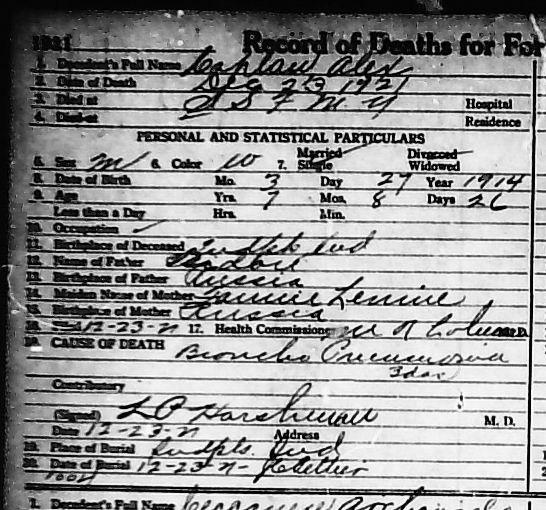 1921 Record of Deaths for For
1. Decedent's Full Name Caplan Alex
2. Date of Death Dec 23 1921
3. Died at S S F M Y Hospital
4. Died at Residence
PERSONAL AND STATISTICAL PARTICULARS
5. Sex M 6. Color W 7. Married Single Divorced Widowed
8. Date of Birth Mo. 3 Day 27 Year 1914
9. Age Yrs. 7 Mos. 8 Days 26
Less than a Day Hrs. Min.
10. Occupation ✓
11. Birthplace of Deceased Indpls Ind
12. Name of Father
13. Birthplace of Father Russia
14. Maiden Name of Mother Fannie
15. Birthplace of Mother Russia
16. 12-23-21 17. Health Commissioner M.D.
19. CAUSE OF DEATH Broncho Pneumonia
3 das
Contributary
(Signed) M. D.
Date 12-23-21 Address
19. Place of Burial Indpls. Ind
20. Date of Burial 12-23-21-
1. Decedent's Full Name